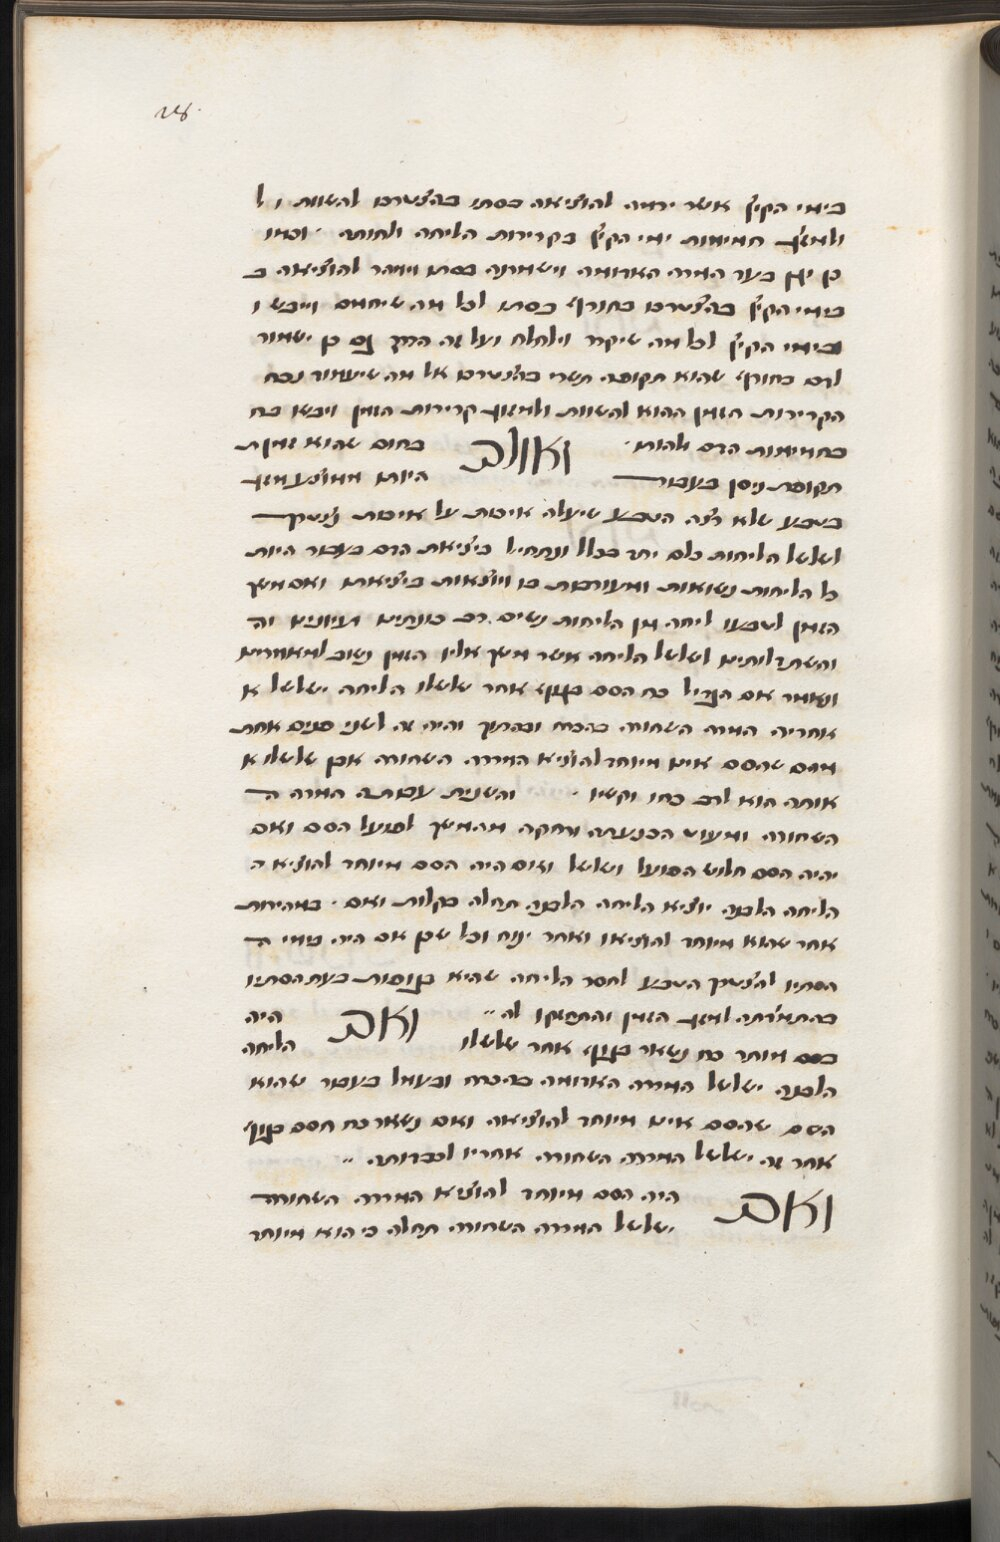 בימי הקיץ אשר ירוה להוציאה בסתו בהצטרפו להשוות ול
ולמשך חמימות ימי הקיץ בקרירות הליחה ולחותה · וכמו
כן יש בער המרה האדומה וישמרנה בסתו וימהר להוציאה ב
בימי הקיץ בהצטרפו בחורף בסתו לכל מה שיחמם וייבש ו
ובימי הקיץ לכל מה שיקרר וילחלח ועל זה הדרך גם כן ישמור
לדם בחורף שהוא תקופת תשרי בהצטרפו אל מה שיעמוד נכח
הקרירות הזמן ההוא להשוות ולמשך קרירות הזמן ויבשו בח
בחמימות הדם ולחותו · ואולם בחום שהוא זמן ת
תקופת ניסן בעבור היותו ממוצע מזג
בטבע שלא רצה הטבע שיעלה איכות על איכות נצטרך
לשלשל הליחות כלם יחד בכלל ונתחיל ביציאת הדם בעבור היות
כל הליחות נשואות ומעורבות בו ויוצאות ביציאתו ואם משך
הזמן לטבעו ליחה מן הליחות נשים רב כונתינו ועיונינו וה
והשתדלותינו לשלשל הליחה אשר משך אליו הזמן נשוב למאמרינו
ונאמר אם הגדיל כח הסם בגוף אחר שלשלו הליחה ישלשל א
אחריה המרה השחורה בהכרח ובהתוך והיה זה לשני פנים אחת
מהם שהסם אינו מיוחד להוציא המרה השחורה אכן שלשלו א
אותה הוא לרב כחו וקשיו · והשנית עכותה המרה ה
השחורה ומעוט הכנעתה ורחקה מהמשך לפועל הסם ואם
יהיה הסם חלוש הפועל ושלשל ואם היה הסם מיוחד להוציא ה
הליחה הלבנה יוציא הליחה הלבנה תחלה בקלות ואם · במהירות
אחר שהוא מיוחד להוציאו ואחר ינוח וכל שכן אם היה בימי ה
הסתיו להצטרך הטבע לחסר הליחה שהיא בנוספות בעת הסתיו
בהתמדתה למשך הזמן והתחזקו לה ·· ואם היה
בסם מיוחד כח נשאר בגוף אחר שלשלו הליחה
הלבנה ישלשל המרה האדומה בהכרח ובעמל בעבור שהוא
הסם שהסם אינו מיוחד להוציאה ואם נשאר כח הסם בגוף
אחר זה ישלשל המרה השחורה אחריו לכבדותה ··
ואם היה הסם מיוחד להוציא המרה השחורה
ישלשל המרה השחורה תחלה כי הוא מיוחד